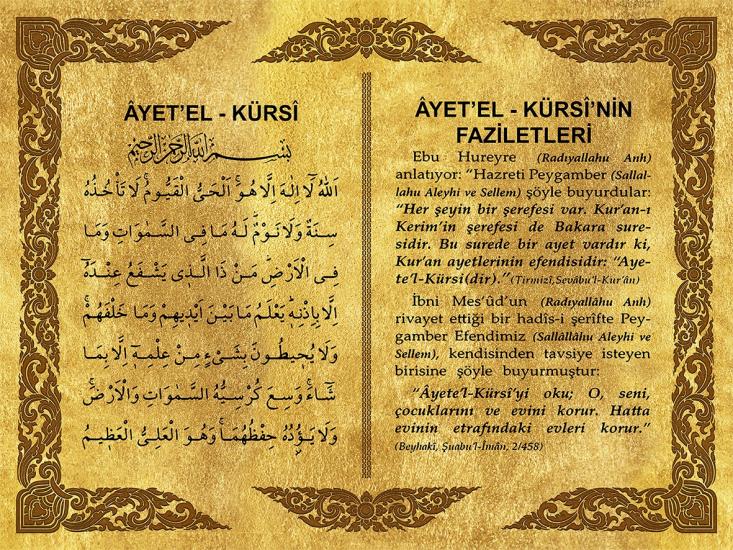 ÂYET’EL - KÜRSÎ
بِسْمِ اللّٰهِ الرَّحْمٰنِ الرَّحِيْمِ
اَللّٰهُ لَٓا اِلٰهَ اِلَّا هُوَۚ اَلْحَىُّ الْقَيُّومُۚ لَا تَاْخُذُهُ
سِنَةٌ وَلَا نَوْمٌۜ لَهُ مَا فِى السَّمٰوَاتِ وَمَا
فِى الْاَرْضِۜ مَنْ ذَا الَّذٖى يَشْفَعُ عِنْدَهُٓ
اِلَّا بِاِذْنِهٖۜ يَعْلَمُ مَا بَيْنَ اَيْدٖيهِمْ وَمَا خَلْفَهُمْۚ
وَلَا يُحٖيطُونَ بِشَىْءٍ مِنْ عِلْمِهٖٓ اِلَّا بِمَا
شَٓاءَۚ وَسِعَ كُرْسِيُّهُ السَّمٰوَاتِ وَالْاَرْضَۚ
وَلَا يَؤُدُهُ حِفْظُهُمَاۚ وَهُوَ الْعَلِىُّ الْعَظٖيمُ
ÂYET’EL - KÜRSÎ’NİN
FAZİLETLERİ
Ebu Hureyre (Radıyallahu Anh)
anlatıyor: “Hazreti Peygamber (Sallal-
lahu Aleyhi ve Sellem) şöyle buyurdular:
“Her şeyin bir şerefesi var. Kur’an-ı
Kerim’in şerefesi de Bakara sure-
sidir. Bu surede bir ayet vardır ki,
Kur’an ayetlerinin efendisidir: “Aye-
te’l-Kürsi(dir).” (Tirmizî, Sevâbu’l-Kur’ân)
İbni Mes’ûd’un (Radıyallâhu Anh)
rivayet ettiği bir hadîs-i şerîfte Pey-
gamber Efendimiz (Sallâllâhu Aleyhi ve
Sellem), kendisinden tavsiye isteyen
birisine şöyle buyurmuştur:
“Âyete’l-Kürsî’yi oku; O, seni,
çocuklarını ve evini korur. Hatta
evinin etrafındaki evleri korur.”
(Beyhakî, Şuabu’l-Îmân, 2/458)